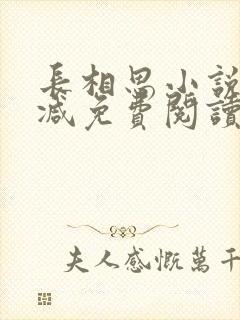 長相思小說
減免費閱讀
夫人感慨萬千